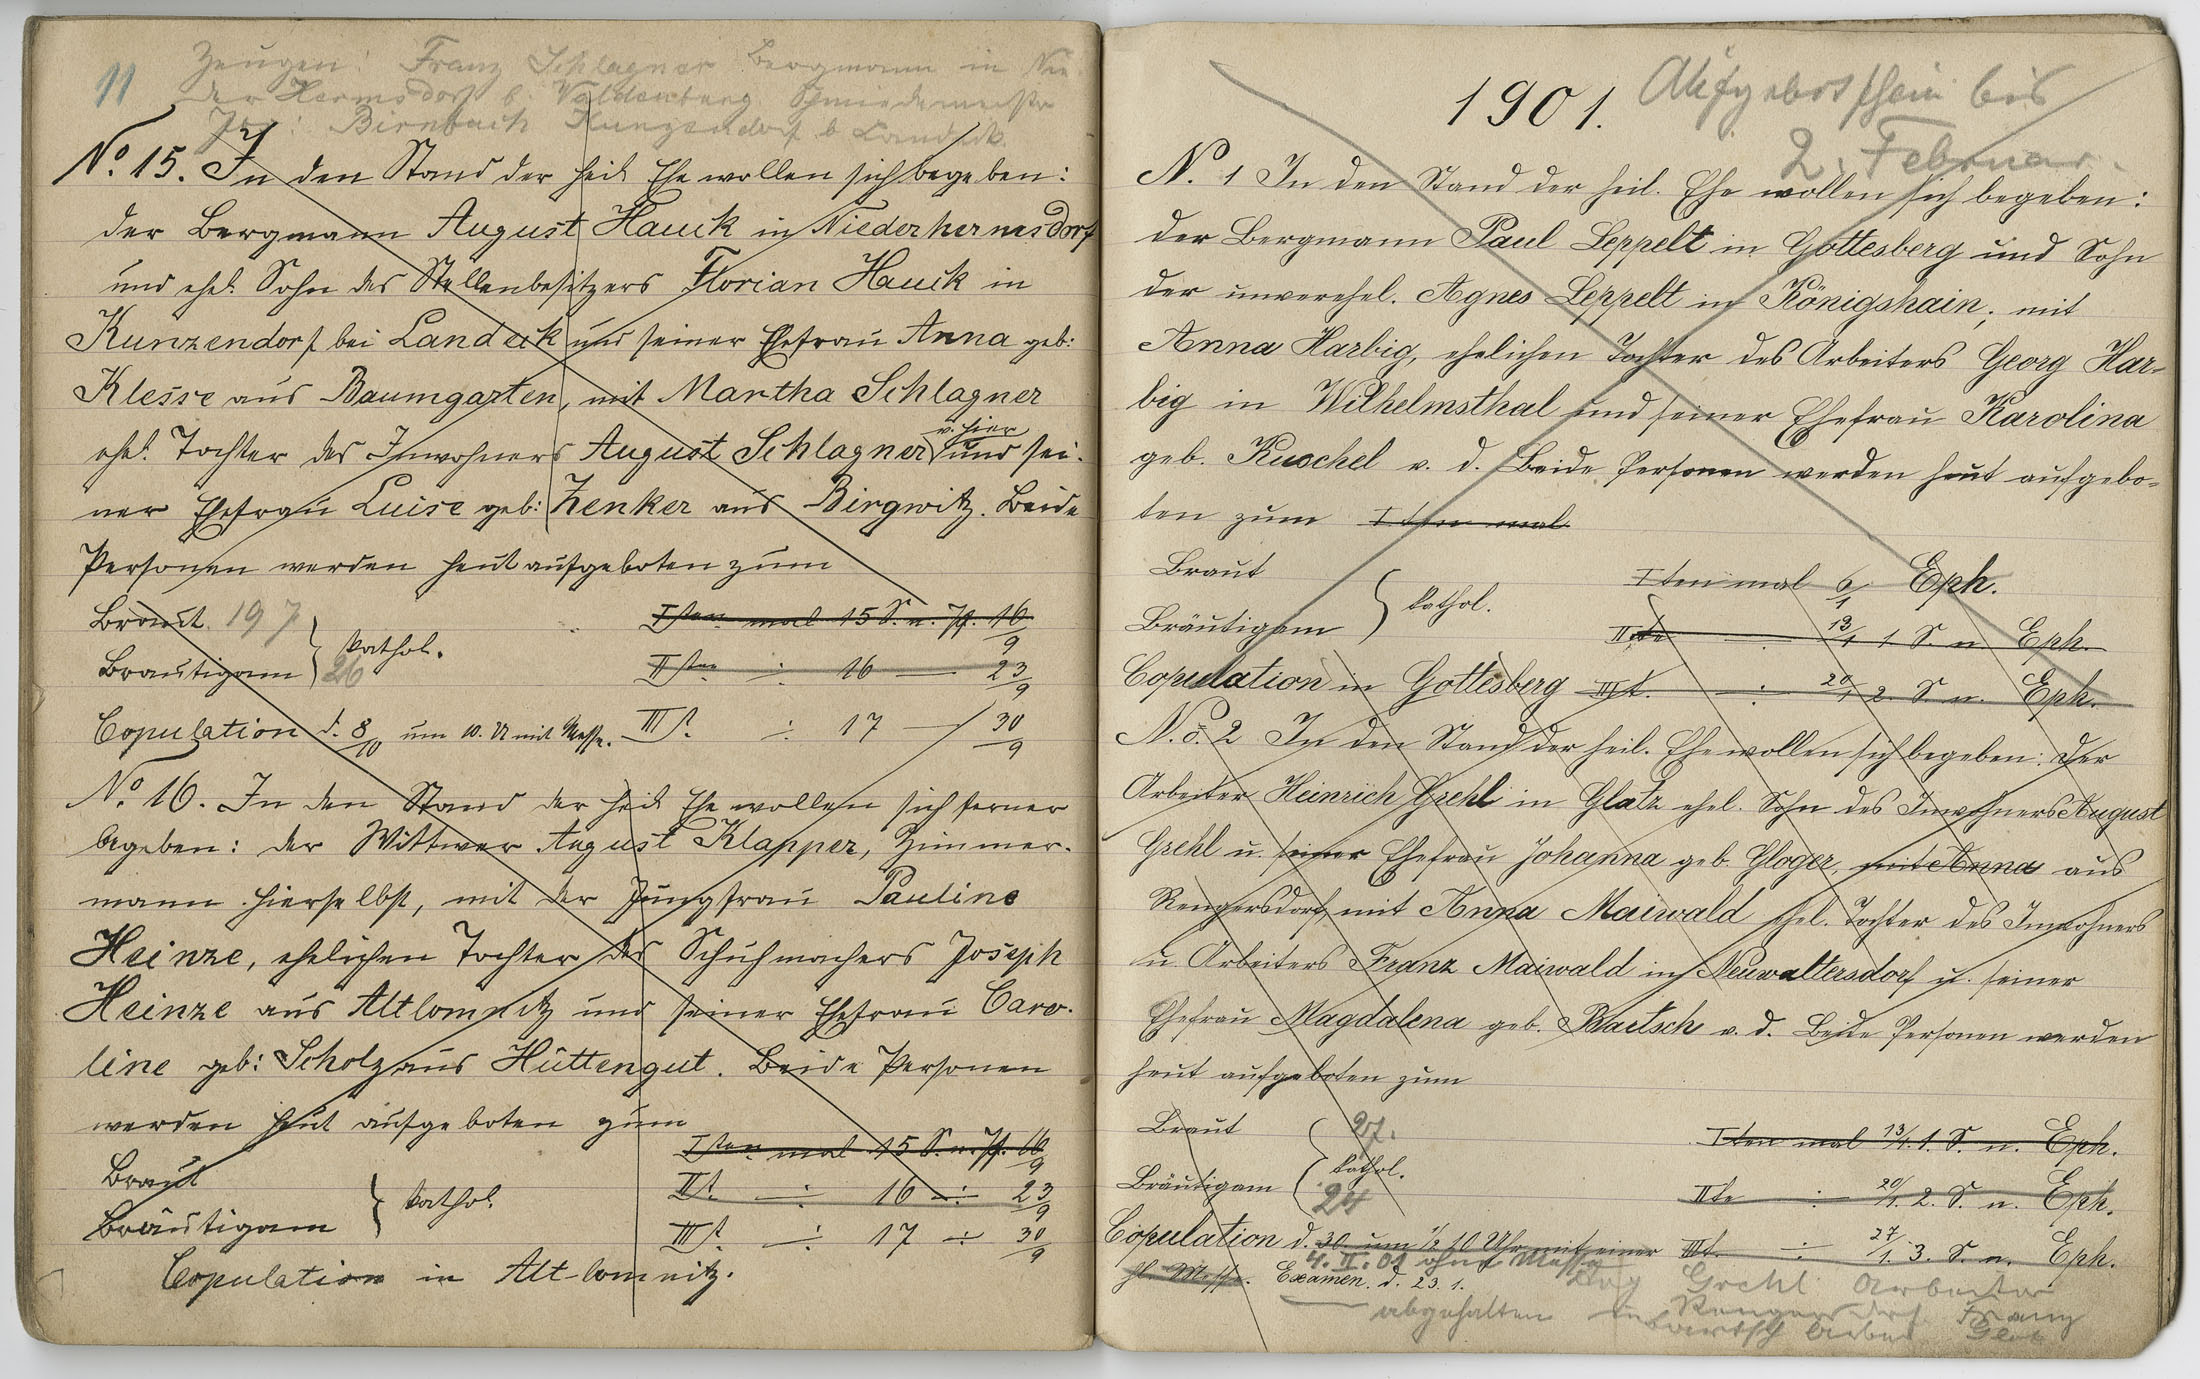 11
Zeugen: Franz Schlagner Bergmann in Nie-
der Hermsdorf b. Waldenburg Schmiedemeister
Jos: Birnbach Kunzendorf b Landeck
No. 15. In den Stand der heil Ehe wollen sich begeben:
der Bergmann August Hauck in Niederhermsdorf
und ehel. Sohn des Stellenbesitzers Florian Hauck in
Kunzendorf bei Landeck und seiner Ehefrau Anna geb:
Klesse aus Baumgarten, mit Martha Schlagner
v. hier
ehel. Tochter des Inwohners August Schlagner und sei-
ner Ehefrau Luise geb: Zenker aus Birgwitz. Beide
Personen werden heut aufgeboten zum
Braut 19 7 Iten mal 15 S. n. Pf. 16/9
Bräutigam 26 kathol. IIten ÷ 16 — 23/9
Copulation d. 8/10 um 10. U mit Messe. III t. ÷ 17 — 30/9
No. 16. In den Stand der heil Ehe wollen sich ferner
begeben: der Wittwer August Klapper, Zimmer-
mann hierselbst, mit der Jungfrau Pauline
Heinze, ehelichen Tochter des Schuhmachers Joseph
Heinze aus Altlomnitz und seiner Ehefrau Caro-
line geb: Scholz aus Hüttengut. Beide Personen
werden heut aufgeboten zum
Iten mal 15 S. n. Pf. 16/9
Braut II t. ÷ 16 ÷ 23/9
Bräutigam kathol. III t. ÷ 17 ÷ 30/9
Copulation in Alt-lomnitz.
1901. Aufgebotsschein bis
2. Februar.
N. 1 In den Stand der heil. Ehe wollen sich begeben:
der Bergmann Paul Leppelt in Gottesberg und Sohn
der unverehel. Agnes Leppelt in Königshain, mit
Anna Harbig, ehelichen Tochter des Arbeiters Georg Har-
big in Wilhelmsthal und seiner Ehefrau Karolina
geb. Kuschel v. d. Beide Personen werden heut aufgebo-
ten zum I ten mal
Braut Iten mal 6/1 Eph.
Bräutigam kathol. IIte ÷ 13/1 1. S. n. Eph.
Copulation in Gottesberg III t. ÷ 20/1 2. S. n. Eph.
No. 2 In den Stand der heil. Ehe wollen sich begeben: der
Arbeiter Heinrich Grehl in Glatz ehel. Sohn des Inwohners August
Grehl u. seiner Ehefrau Johanna geb. Gloger, mit Anna aus
Rengersdorf mit Anna Maiwald ehel. Tochter des Inwohners
u. Arbeiters Franz Maiwald in Neuwaltersdorf u. seiner
Ehefrau Magdalena geb. Bartsch v. d. Beide Personen werden
heut aufgeboten zum
Braut 27. Iten mal 13/1. 1. S. n. Eph.
Bräutigam kathol. 24 IIte ÷ 20/1. 2. S. n. Eph.
Copulation d. 30 um 1/2 10 Uhr mit einer III t. ÷ 27/1. 3. S. n. Eph.
4. II. 01 ohne Messe
hl. Messe. Examen. d. 23. 1. Aug Grehl Arbeiter
abgehalten in Rengersdorf Franz
Bartsch